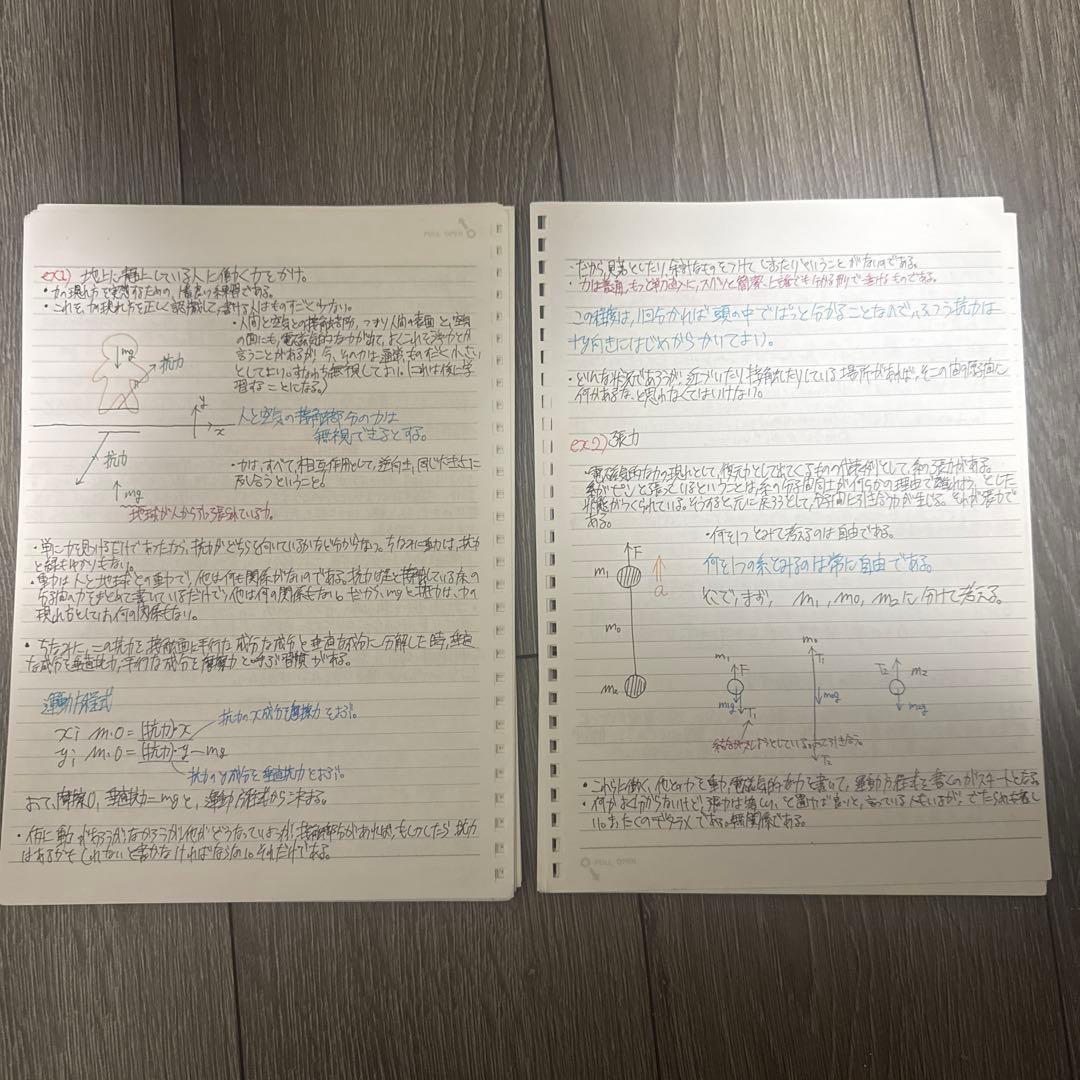 PULL OPEN
ex1) 地上に静止している人に働く力をかけ。
・力の現れ方を実感するための一番良い練習である。
・これを、力の現れ方を正しく認識して、書ける人はものすごく少ない。
・人間と空気との接触部分、つまり人間の表面と、空気
の間にも、電磁気的な力が出て、よくこれを浮力とか
言うことがあるが、今、その力は通常、ものすごく小さい
としてよい。すなわち無視してよい。(これは後に学
習することになる。)
mg
抗力
y
x
人と空気の接触部分の力は
無視できるとする。
抗力
・力は、すべて、相互作用として、逆向き、同じ大きさに
及し合うということ。
mg
地球が人から引っ張られている力。
・単に力を見つけるだけであったから、抗力がどちらを向いているかなど分からない。ちなみに重力は、抗力
と縁もゆかりもない。
・重力は人と地球との重力で、他は何も関係がないのである。抗力は足と接触している床の
分子間の力をまとめて書いているだけで、他は何の関係もない。だから、mgと抗力は、力の
現れ方としては、何の関係もない。
・ちなみに、この抗力を接触面と平行な成分と垂直な成分に分解した時、垂直
な成分を垂直抗力、平行な成分を摩擦力と呼ぶ習慣がある。
運動方程式
x; m・0 = (抗力)x
抗力のx成分を摩擦力とよぶ。
y; m・0 = (抗力)y − mg
抗力のy成分を垂直抗力とよぶ。
よって、摩擦0、垂直抗力=mgと、運動方程式から決まる。
・仮に動こうがなかろうが、他がどうなっていようが、接触部分があれば、もしかしたら抗力
はあるかもしれないと書かなければならない。それだけである。
・だから、見落としたり、余計なものをつけてしまったりということがないのである。
・力は普通、もっと単純に、スカッと簡潔に、誰でも分かる形で書けるものである。
この種類は、1回分かれば頭の中でぱっと分かることなので、ふつう抗力は
+y向きにはじめからかいてよい。
・どんな状況であろうが、近づいたり、接触したりしている場所があれば、そこの間の原子間に
何かがあるな、と思わなくてはいけない。
ex2) 張力
・電磁気的な力の現れとして、復元力として出てくるものの代表例として、糸の張力がある。
糸がピンと張っているということは、糸の分子間同士が何らかの理由で離れようとした
状態がつくられている。そうすると元に戻ろうとして、分子間に引き合う力が生じる。それが張力で
ある。
・何を1つとみて考えるのは自由である。
F
m₁
a
何を1つの系とみるのは常に自由である。
そこで、まず、m₁, m₀, m₂に分けて考える。
m₀
m₂
m₁
F
m₁g
T₁
m₀
T₁
m₀g
T₂
T₂
m₂
m₂g
・これらに働く、他との力を重力、電磁気的な力を書いて、運動方程式を書くのがスタートとなる。
・何かよく分からないけど、張力は等しい、と置けば良いと、言っている人もいるが、でたらめも著し
い。まったくのデタラメである。無関係である。
PULL OPEN